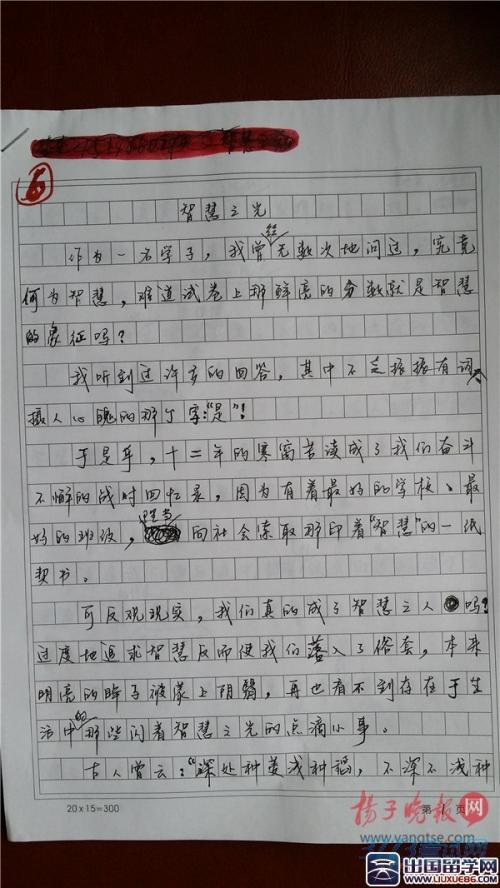 6
智慧之光
作为一名学子，我曾经无数次地问过，究竟
何为智慧，难道试卷上那鲜亮的分数就是智慧
的象征吗？
我听到过许多的回答，其中不乏振振有词、
摄人心魄的那个字:"是"！
于是乎，十二年的寒窗苦读成了我们奋斗
不懈的战时回忆录，因为有着最好的学校、最
好的班级，向社会索取那印着"智慧"的一纸
契书。
可反观现实，我们真的成了智慧之人吗？
过度地追求智慧反而使我们落入了俗套，本来
明亮的眸子被蒙上阴翳，再也看不到存在于生
活中的那些闪着智慧之光的点滴小事。
古人曾云："深处种菱浅种稻，不深不浅种
20×15=300
第 1 页
扬子晚报网
www.yangtse.com
出国留学网
www.liuxue86.com